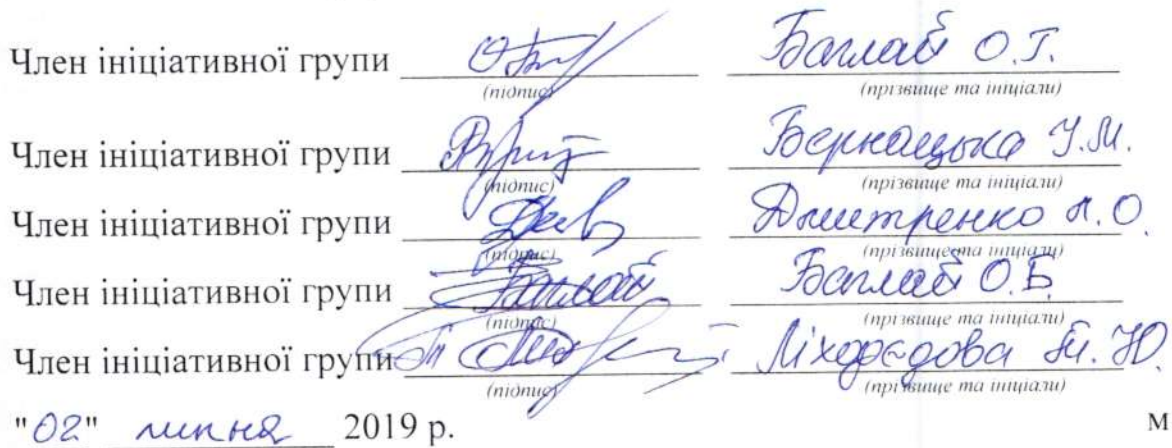 Член ініціативної групи Баглай О.Г.
(підпис) (прізвище та ініціали)
Член ініціативної групи Бернацька У.М.
(підпис) (прізвище та ініціали)
Член ініціативної групи Дмитренко Л.О.
(підпис) (прізвище та ініціали)
Член ініціативної групи Баглай О.Б.
(підпис) (прізвище та ініціали)
Член ініціативної групи Ліходєдова Т.Ю.
(підпис) (прізвище та ініціали)
"02" липня 2019 р. м